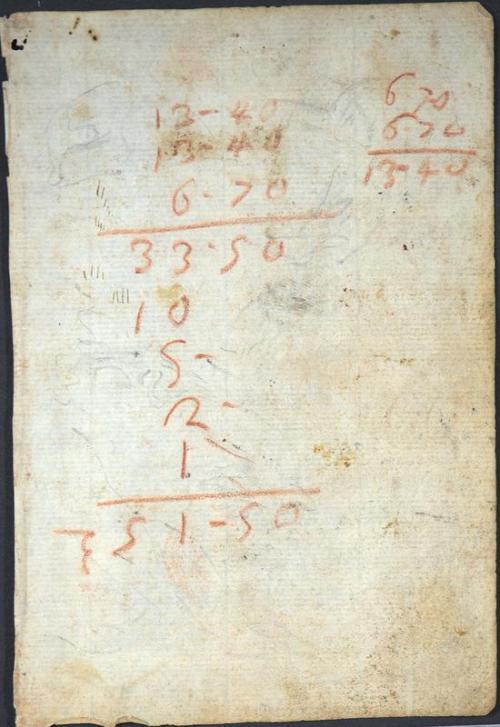 13-40
13-40
6-70
33-50
10
5-
2-
1
51-50
6 70
6-70
13-40